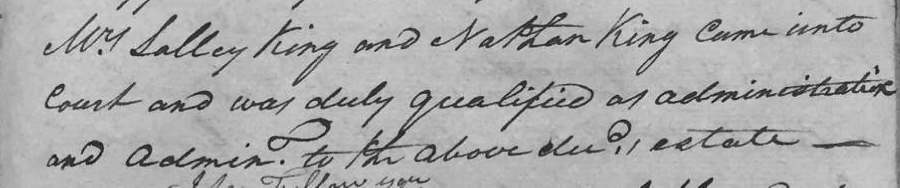 Mrs Salley King and Nathan King came into
Court and was duly qualified as administratrix
and Admin.r to the above decd,, estate —